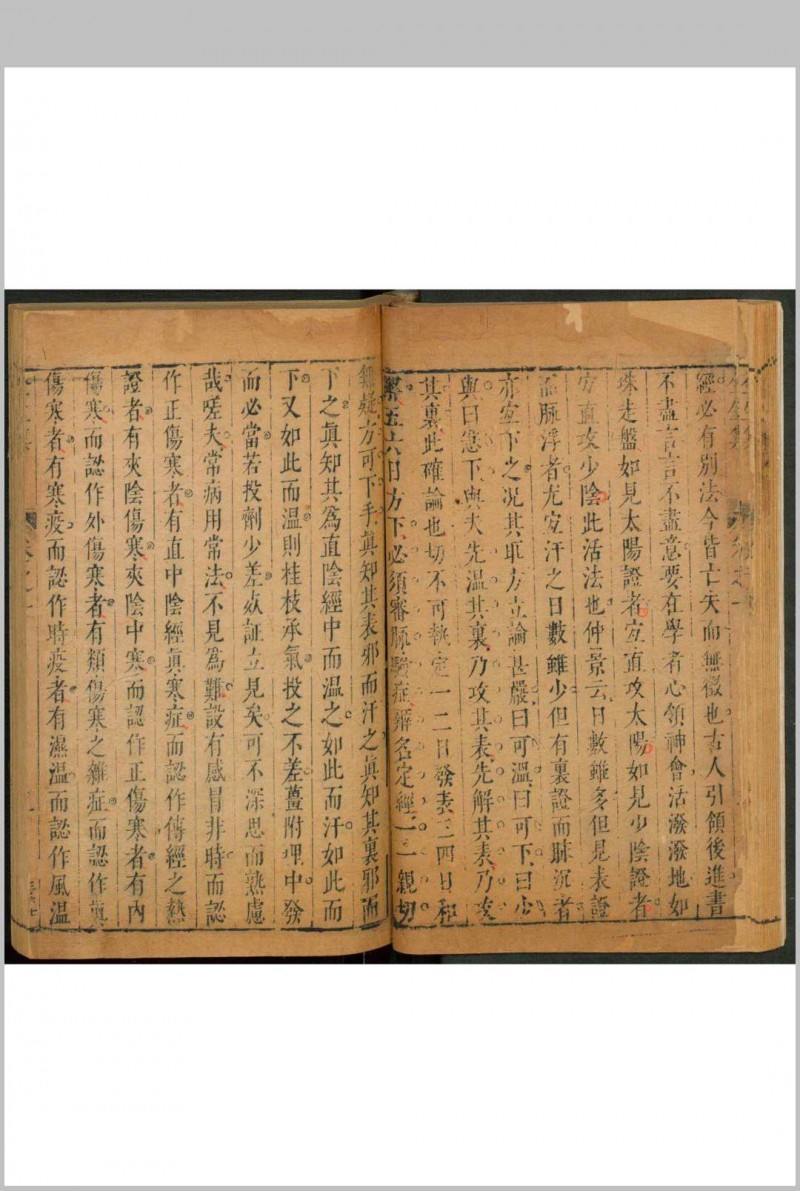 經必有別法今皆亡矣而無徵也古人引領後進書
不盡言言不盡意要在學者心領神會活潑潑地如
珠走盤如見太陽證者宜直攻太陽如見少陰證者
宜直攻少陰此活法也仲景云日數雖多但見表證
而脉浮者尤宜汗之日數雖少但有裏證而脉沉者
亦宜下之况其取方立論甚嚴曰可溫曰可下曰少
與曰急下與夫先溫其裏乃攻其表先解其表乃攻
其裏此確論也切不可執定一二日發表三四日和
解五六日方下必須審脉驗症辨名定經一一親切
無疑方可下手眞知其表邪而汗之眞知其裏邪而
下之眞知其爲直陰經中而温之如此而汗如此而
下又如此而温則桂枝承氣投之不差薑附理中發
而必當若投劑少差効証立見矣可不深思而熟慮
哉嗟夫常病用常法不見爲難設有感冒非時而認
作正傷寒者有直中陰經眞寒症而認作傳經之熱
證者有夾陰傷寒夾陰中寒而認作正傷寒者有內
傷寒而認作外傷寒者有類傷寒之雜症而認作眞
傷寒者有寒疫而認作時疫者有濕溫而認作風溫